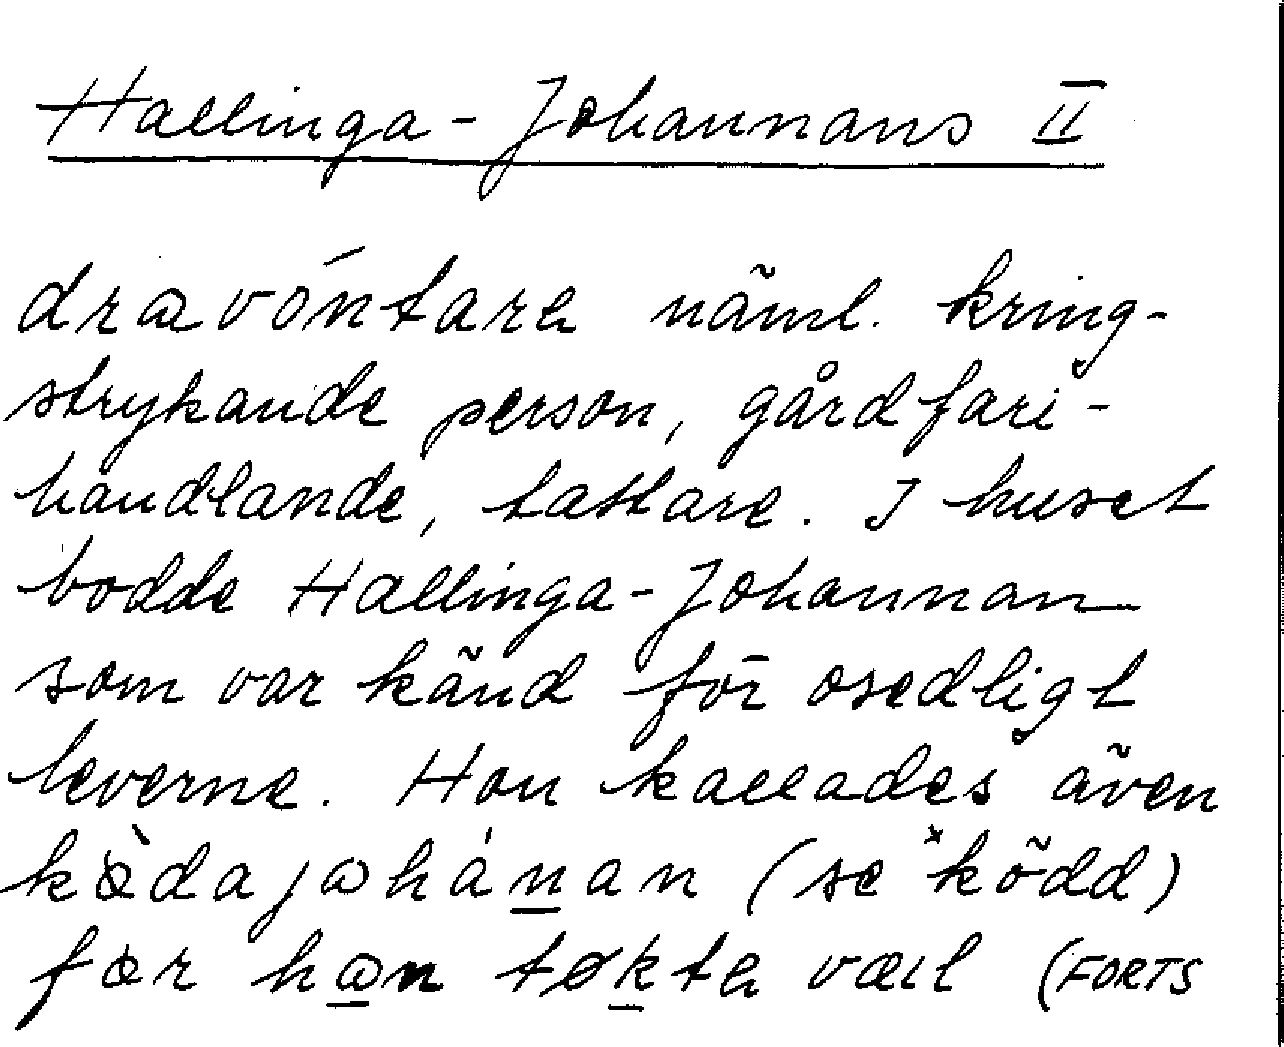 Hallinga-Johannans II
dravóntare näml. kring-
strykande person, gårdfari-
handlande, tattare. I huset
bodde Hallinga-Johannan
som var känd för osedligt
leverne. Hon kallades även
kòdajohánan (se *ködd)
før hon tøkte væl (FORTS